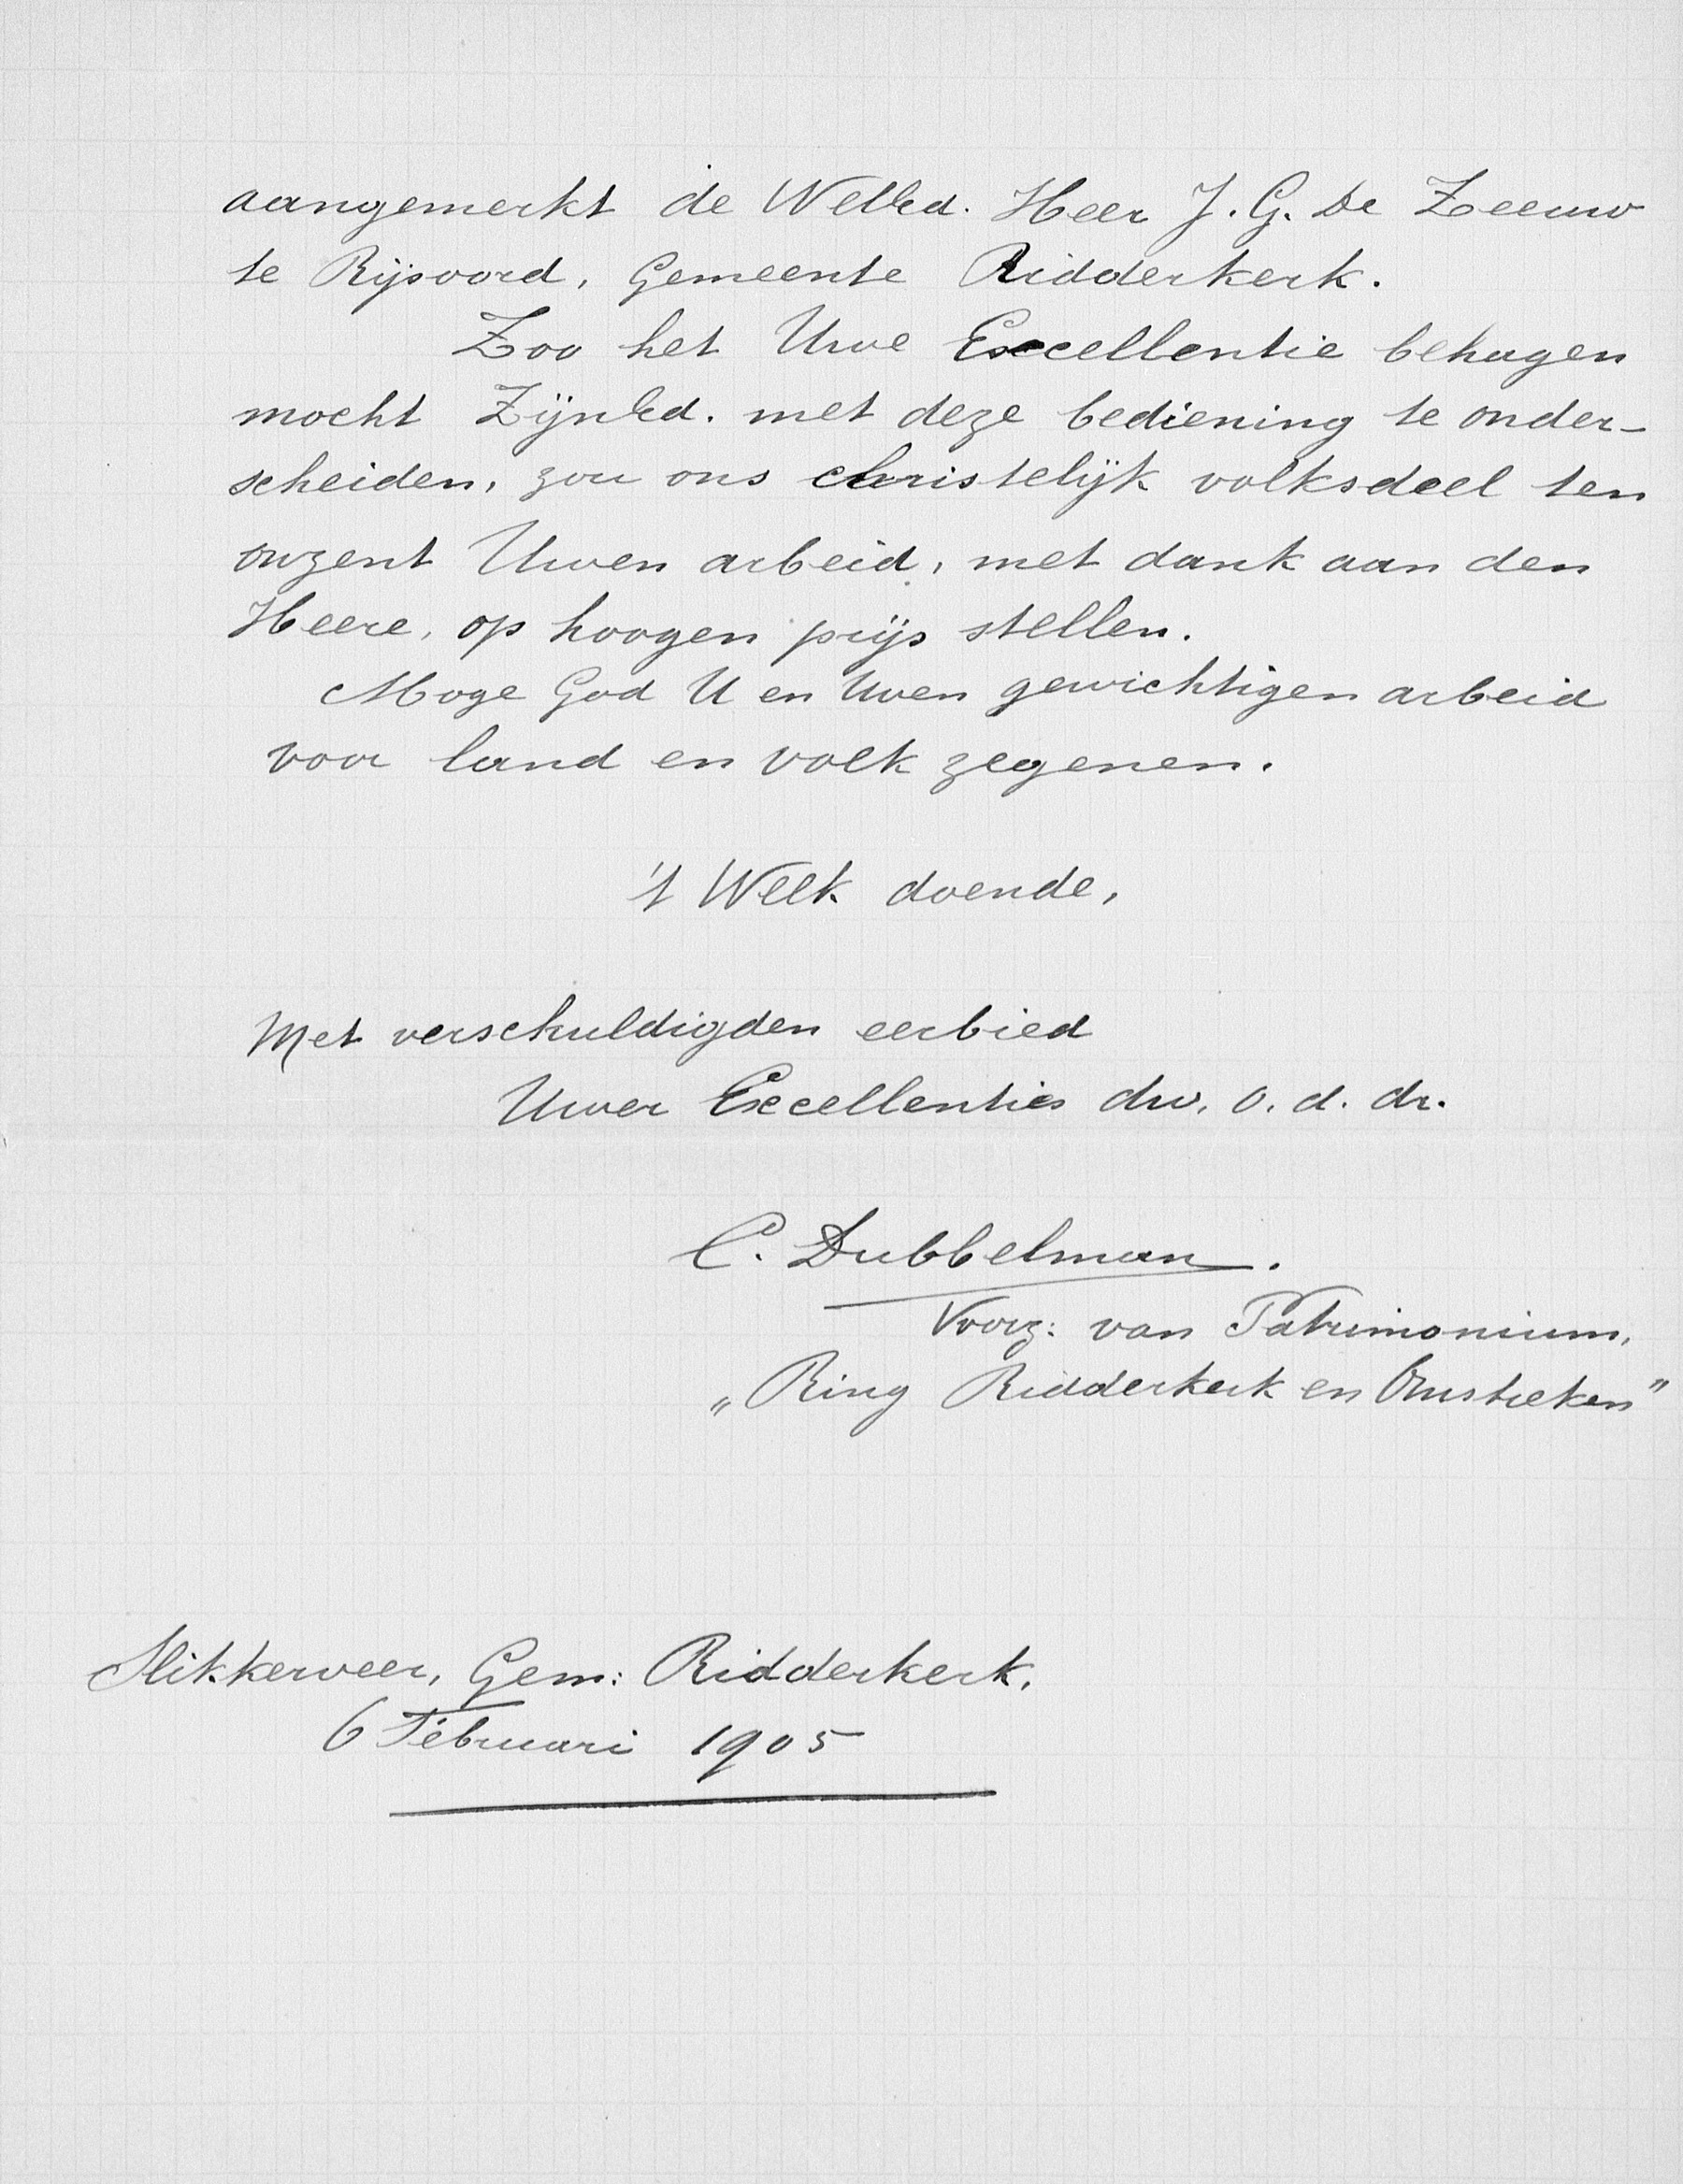 aangemerkt de WelEd. Heer J. G. De Zeeuw
te Rijsoord, Gemeente Ridderkerk.
Zoo het Uwe Excellentie behagen
mocht ZijnEd. met deze bediening te onder-
scheiden, zou ons christelijk volksdeel ten
onzent Uwen arbeid, met dank aan den
Heere, op hoogen prijs stellen.
Moge God U en Uwen gewichtigen arbeid
voor land en volk zegenen.
't Welk doende,
Met verschuldigden eerbied
Uwer Excellenties dw. o. d. dr.
C. Dubbelman.
Voorz: van Patrimonium,
„Ring Ridderkerk en Omstreken"
Slikkerveer, Gem: Ridderkerk,
6 Februari 1905